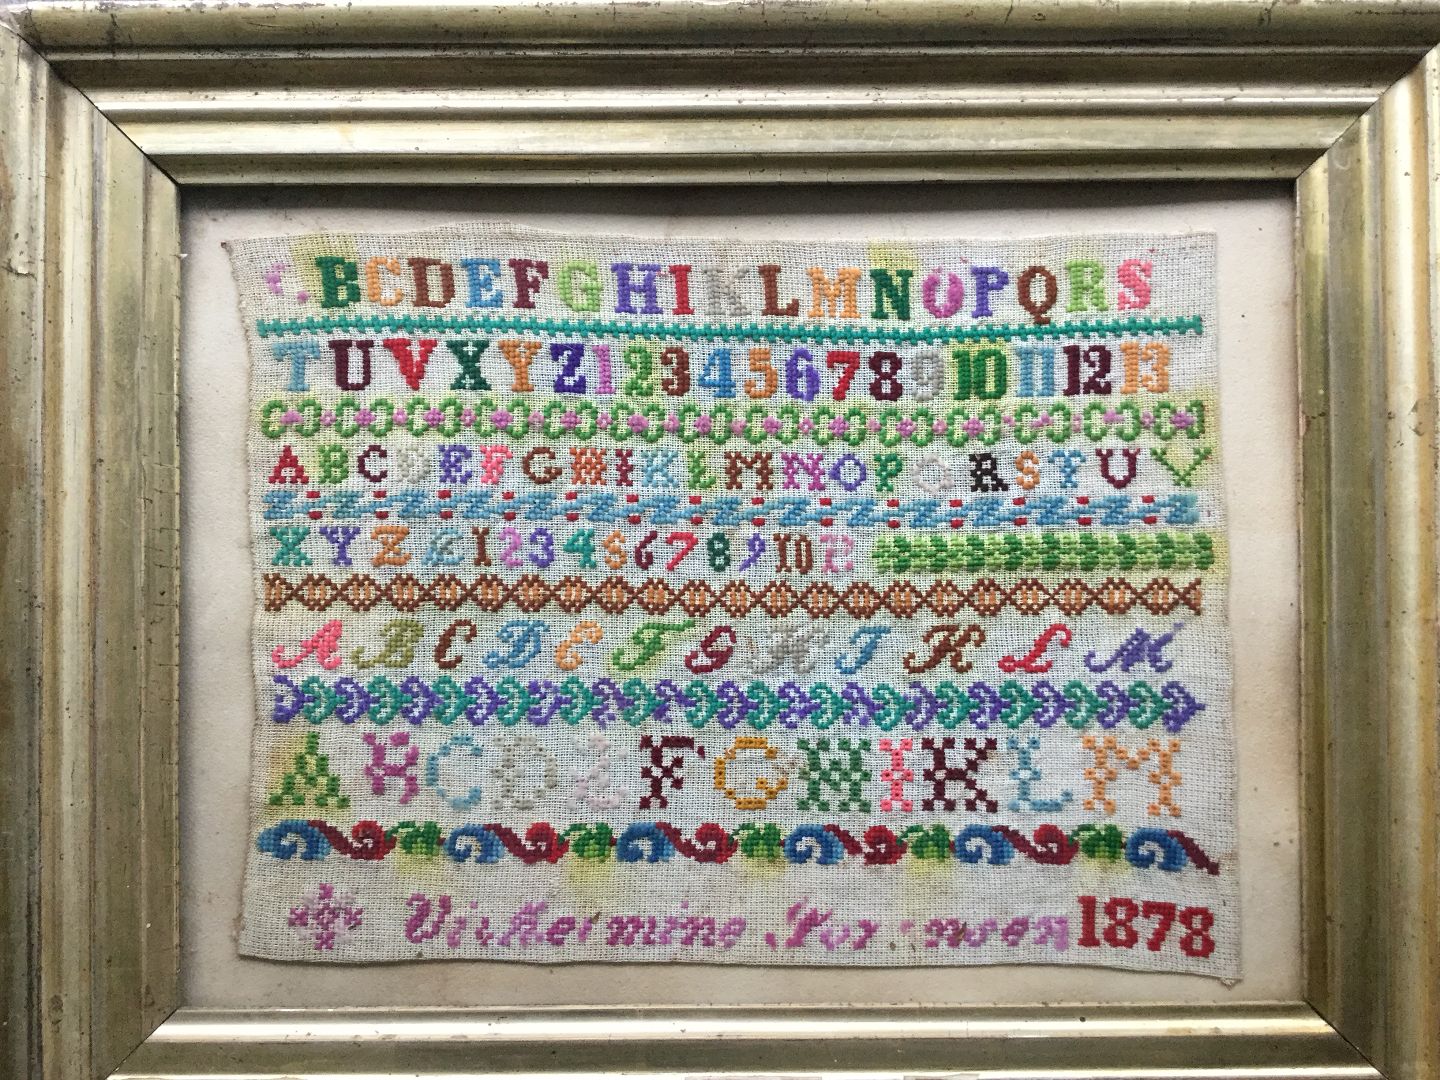 BCDEFGHIKLMNOPQRS
TUVXYZ12345678910111213
ABCDEFGHIKLMNOPQRSTUV
XYZÆ12345678910
ABCDEFGHIKLM
ABCDEFGHIKLM
1878